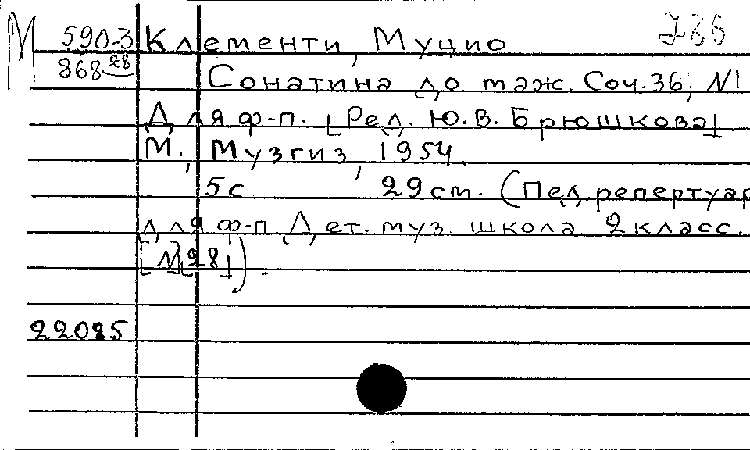 М 590-3 Клементи, Муцио
868 28 Сонатина до маж. Соч. 36, №1
Для ф-п. [Ред. Ю.В. Брюшкова]
М., Музгиз, 1954.
5 с 29 см. (Пед. репертуар
для ф-п Дет. муз. школа 2 класс.
[№ 28]).
22025